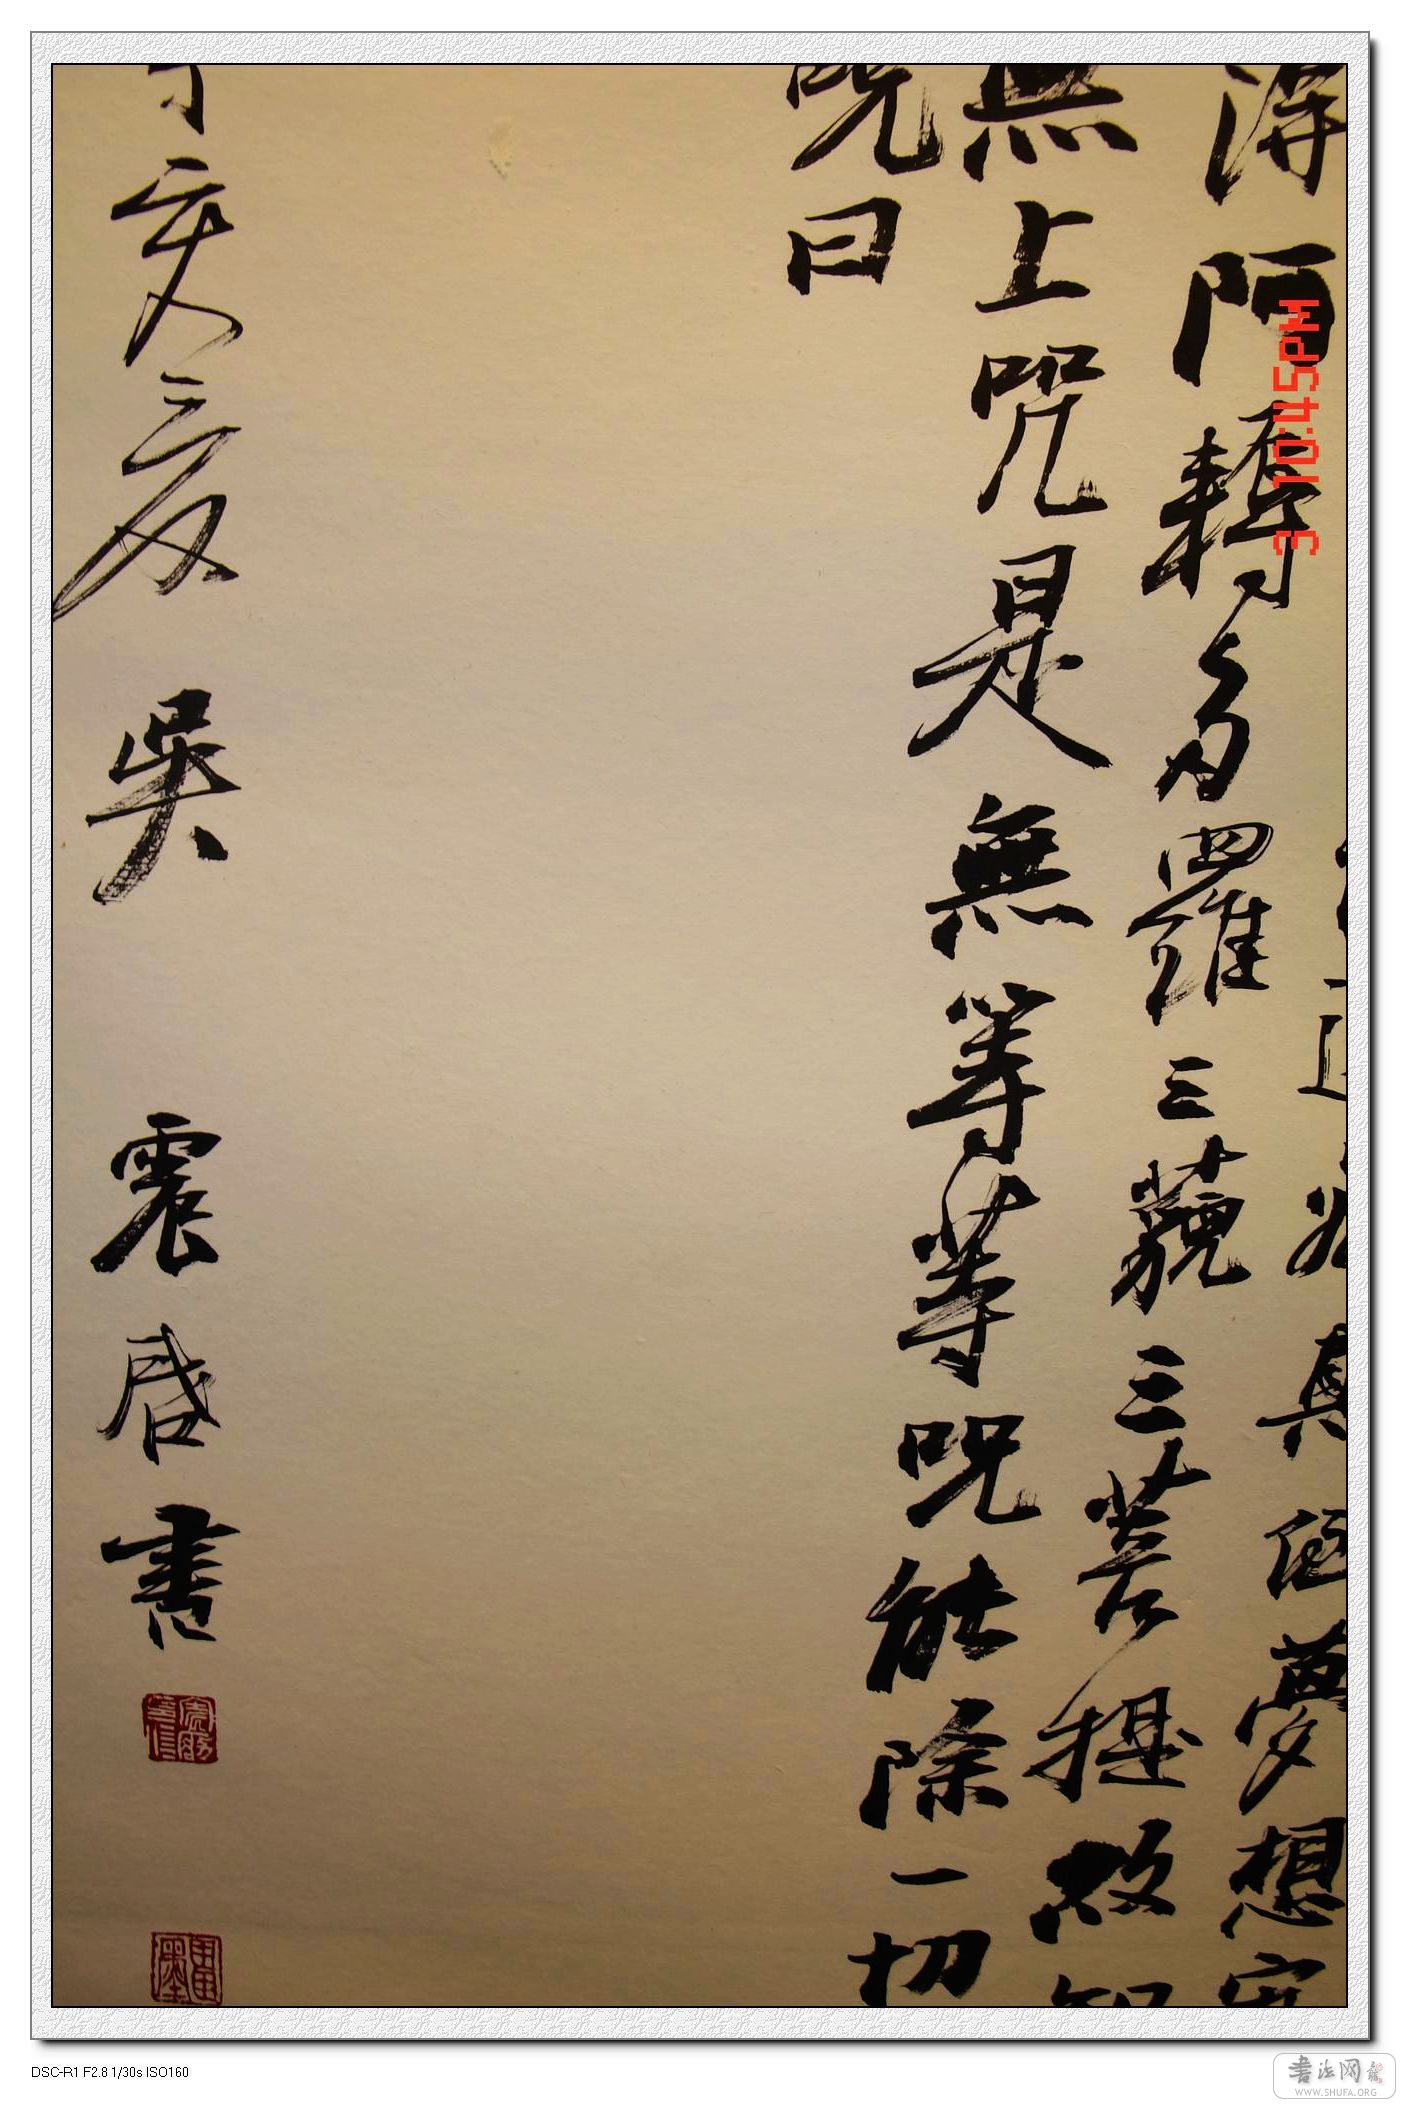 真顛夢想究
得阿耨多羅三藐三菩提故知
無上咒是無等等咒能除一切
咒曰
丁亥夏吳震啓書
3 10:45PM
DSC-R1 F2.8 1/30s ISO160
書法网
WWW.SHUFA.ORG